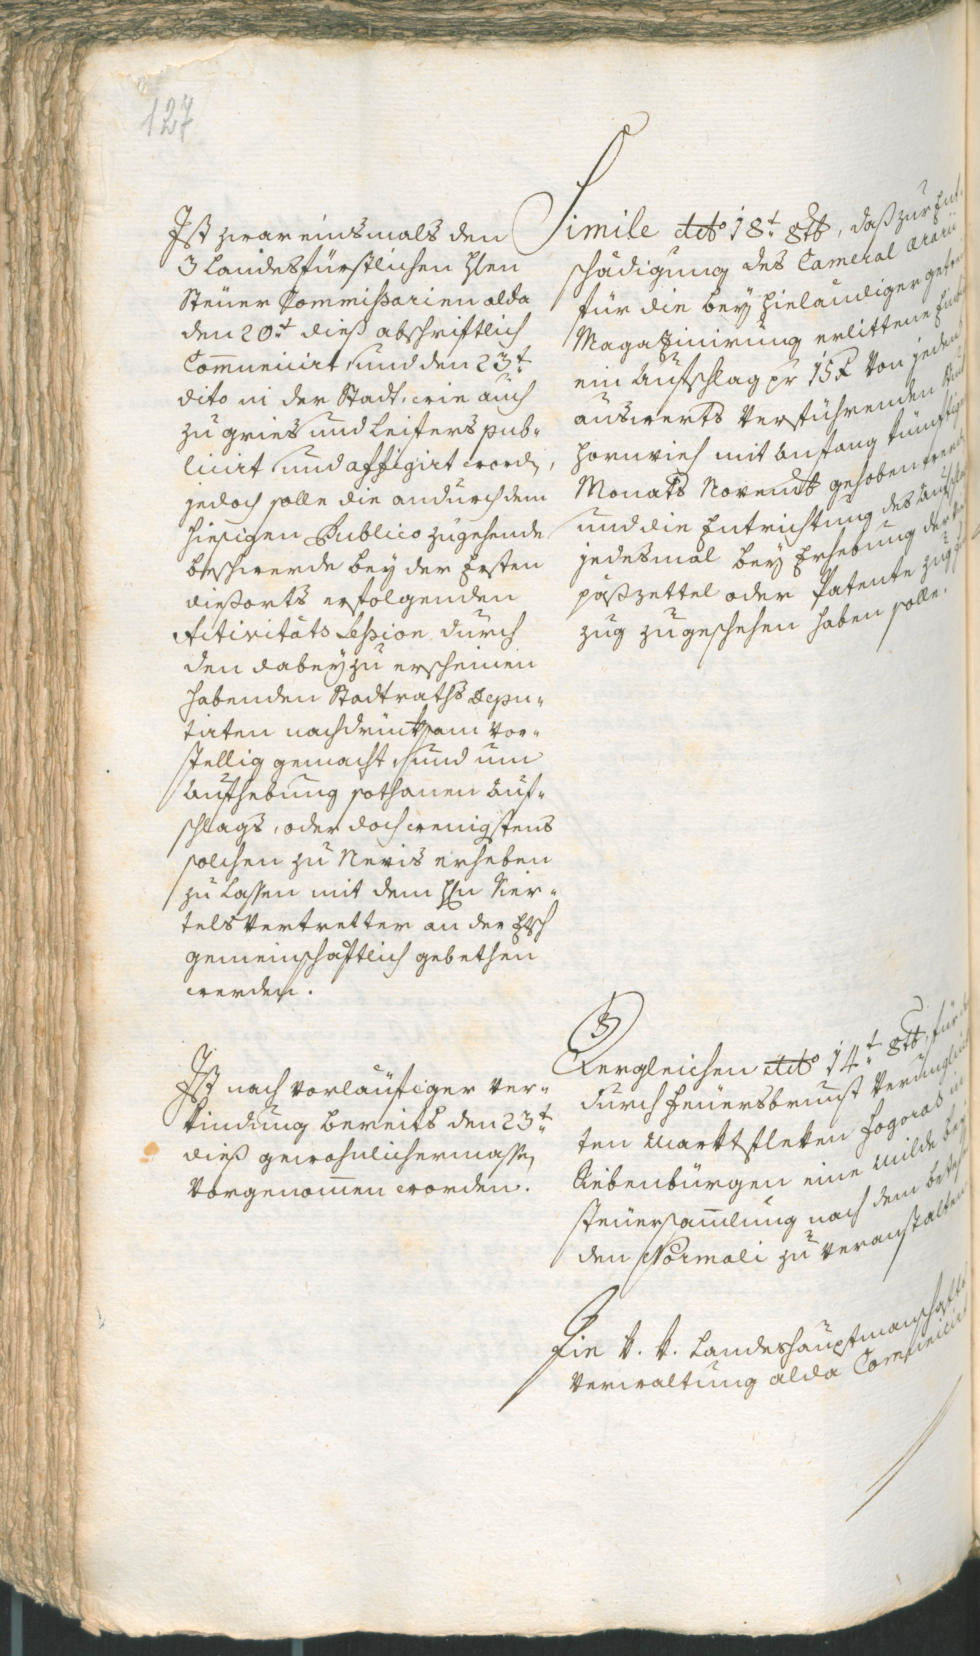 127
Ist zwar einsmals den
3 Landesfürstlichen H̄len
Steüer Commissarien alda
den 20t. dieß abschriftlich
Com̄unicirt, und den 23t.
dito in der Stadt, wie auch
zu Gries und Leifers pub-
licirt und affigirt word̄,
jedoch solle die andurch dem
hiesigen Publico zugehende
beschwerde bey der Ersten
dießorts erfolgenden
Activitäts Session durch
den dabey zu erscheinen
habenden Stadtraths Depu-
tirten nachdruksam vor-
stellig gemacht, und um
Aufhebung sothanen Auf-
schlags, oder doch wenigstens
solchen zu Nevis erheben
zu Lassen mit dem H̄n Vier-
tels Vertretter an der Etsch
gemeinschaftlich gebethen
werden.
Ist nach vorläufiger Ver-
kündung bereits den 23t.
dieß gewohnlichermass̄
vorgenom̄en worden.
Simile ddto 18t. 8tb, daß zur Ent-
schädigung des Cameral Ararii
für die bey hieländiger
Magazinirung erlittene
ein Aufschlag pr 15 x von jeden
auswerts verführenden
Hornvieh mit Anfang künftigen
Monats Novemb gehoben werden
und die Entrichtung des
jedesmal bey Erhebung der
paßzettel oder Patente
zug zugeschehen haben solle.
3
Dergleichen ddto 14t. 8tb, für
durch Feüersbrunst Verunglük
ten Marktfleken Fogoras in
Siebenbürgen eine Milde bey
steüersam̄lung nach dem
den Normali zu veranstalten
Die k. k. Landeshauptmanschafts
Verwaltung alda Com̄unicirt